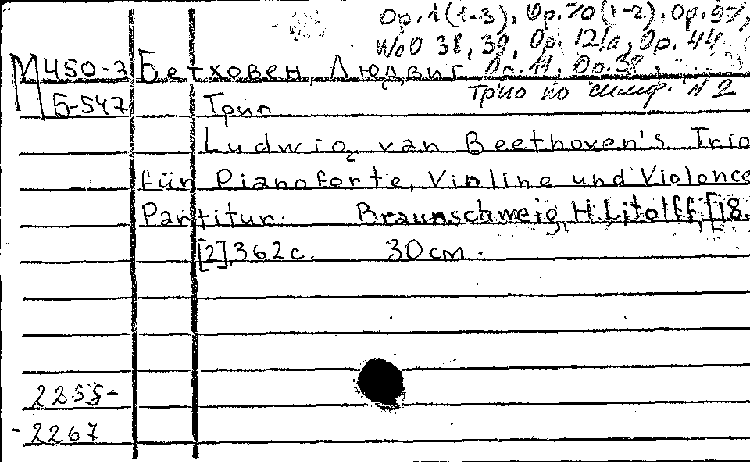 Op. 1 (1-3), Op. 70 (1-2), Op. 97,
WoO 38, 39, Op. 121a, Op. 44
М 450-3 Бетховен, Людвиг Op. 11, Op. 38,
Б-547 Трио Трио по симф. N 2
Ludwig van Beethoven's Trio
für Pianoforte, Violine und Violonce
Partitur. Braunschweig, H. Litolff, [18.
[2], 362 с. 30 см.
2258-
-2267